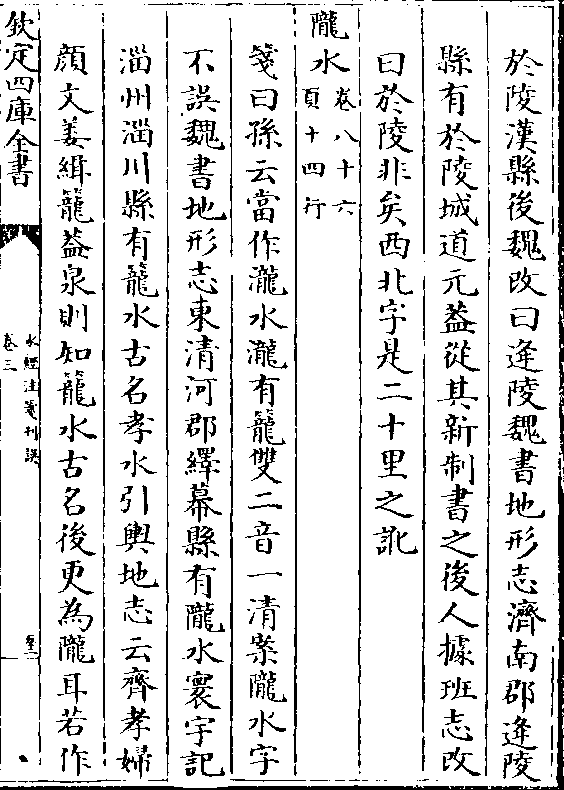 於陵漢縣後魏改曰逄陵魏書地形志濟南郡逄陵
縣有於陵城道元葢從其新制書之後人據班志改
曰於陵非矣西北字是二十里之訛
隴水卷八十六頁十四行
箋曰孫云當作瀧水瀧有籠雙二音一清案隴水字
不誤魏書地形志東清河郡繹幕縣有隴水寰宇記
淄州淄川縣有籠水古名孝水引輿地志云齊孝婦
顔文姜緝籠葢泉則知籠水古名後更為隴耳若作
欽定四庫全書
水經注箋刊誤
卷三